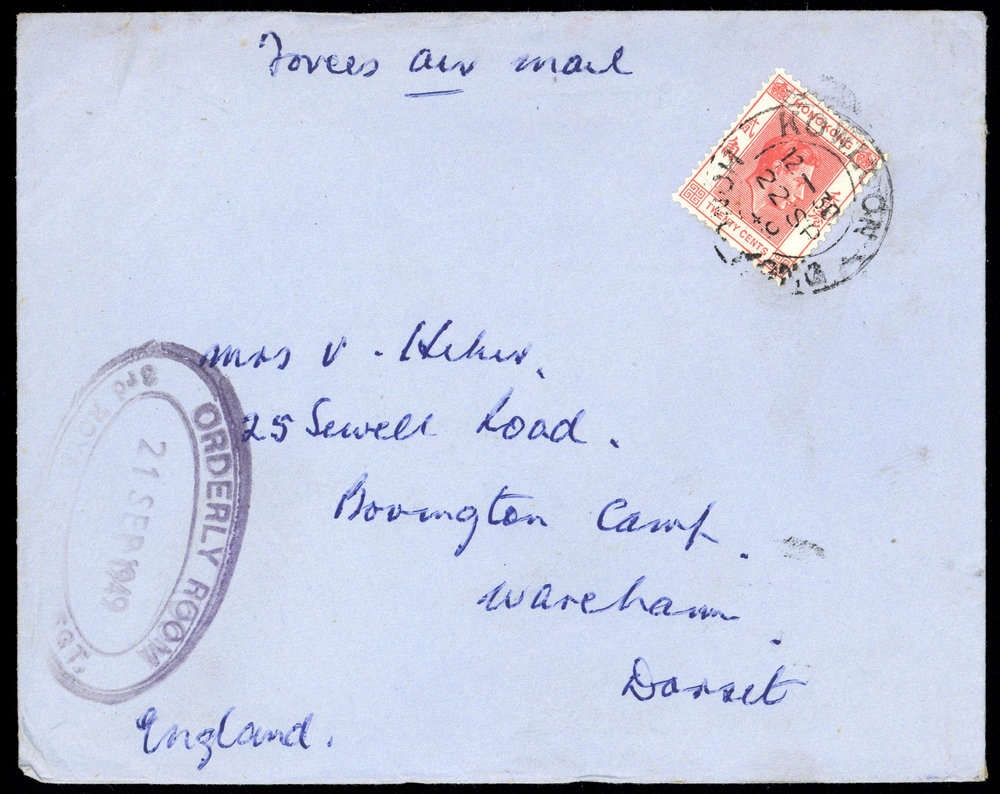 Forces air mail
HONG KONG
TWENTY CENTS
KOWLOON
12 30
22 SP
49
HONG KONG
Mrs V.
25 Sewell Road.
Bovington Camp.
Wareham.
Dorset
England.
3rd
ORDERLY ROOM
21 SEP 1949
RGT.